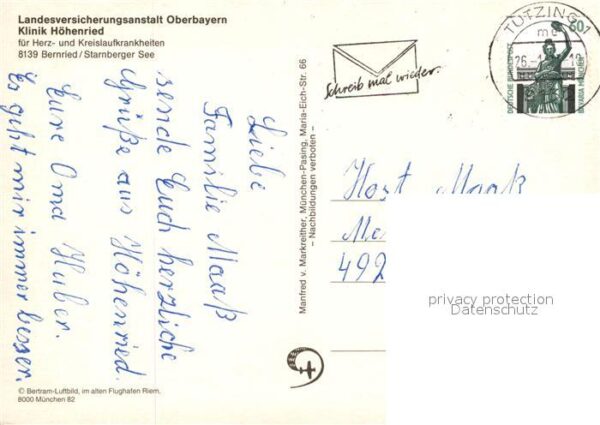 Landesversicherungsanstalt Oberbayern
Klinik Höhenried
für Herz- und Kreislaufkrankheiten
8139 Bernried/Starnberger See
Liebe
Familie Maaß
sende Euch herzliche
Grüße aus Höhenried.
Eure Oma Huber.
Es geht mir immer besser.
© Bertram-Luftbild, im alten Flughafen Riem,
8000 München 82
Manfred v. Markreither, München-Pasing, Maria-Eich-Str. 66
– Nachbildungen verboten –
Schreib mal wieder.
TUTZING 1
26.
60
DEUTSCHE BUNDESPOST
BAVARIA MÜNCHEN
Maaß
492
privacy protection
Datenschutz